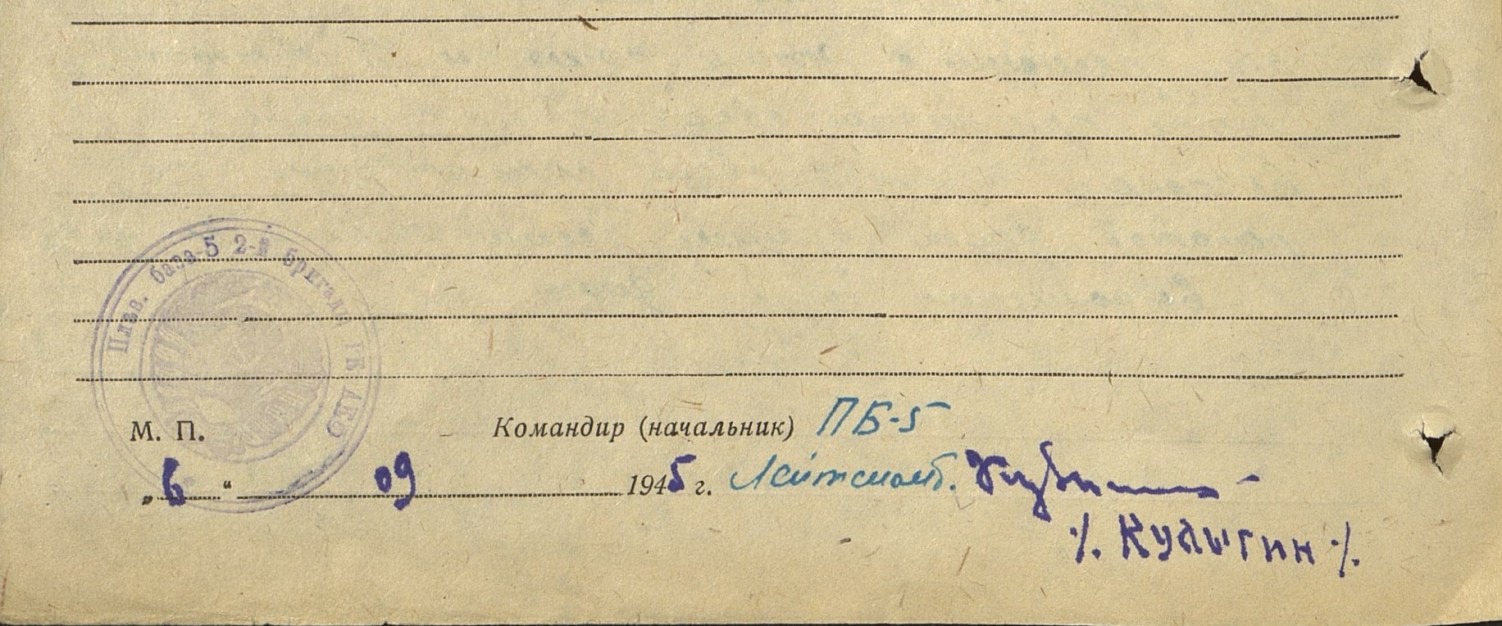 Плав. база-5 2-й бригады
М. П.
Командир (начальник) ПБ-5
„6“ 09 1945 г. Лейтенант.
./. Кулыгин ./.